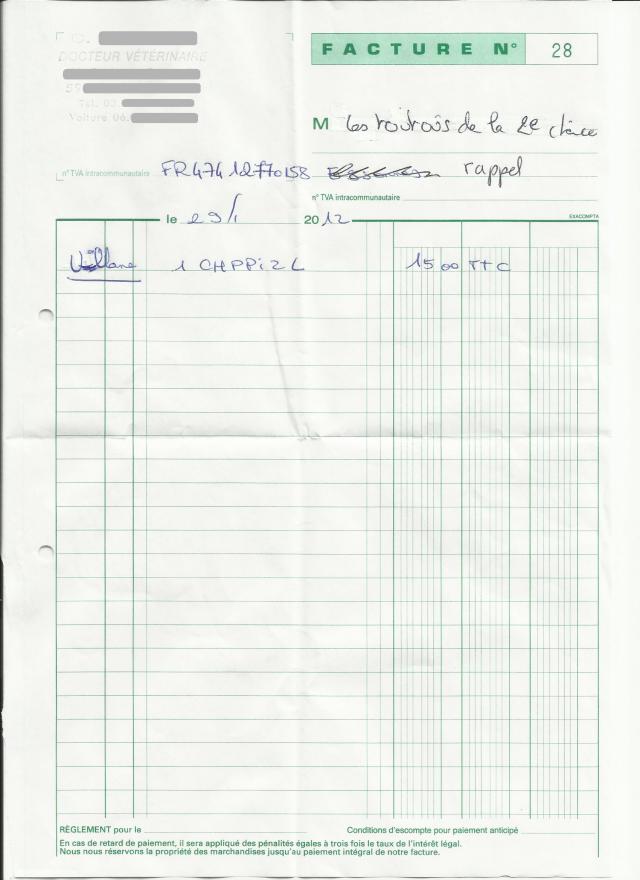 DOCTEUR VÉTÉRINAIRE
59
Tél. 03
Voiture 06
FACTURE N° 28
M Les toutous de la 2e chance
n° TVA intracommunautaire FR47412770158
rappel
n° TVA intracommunautaire
le 29/1 2012
EXACOMPTA
1 CHPPi2L 15 00 TTC
RÈGLEMENT pour le
Conditions d'escompte pour paiement anticipé
En cas de retard de paiement, il sera appliqué des pénalités égales à trois fois le taux de l'intérêt légal.
Nous nous réservons la propriété des marchandises jusqu'au paiement intégral de notre facture.